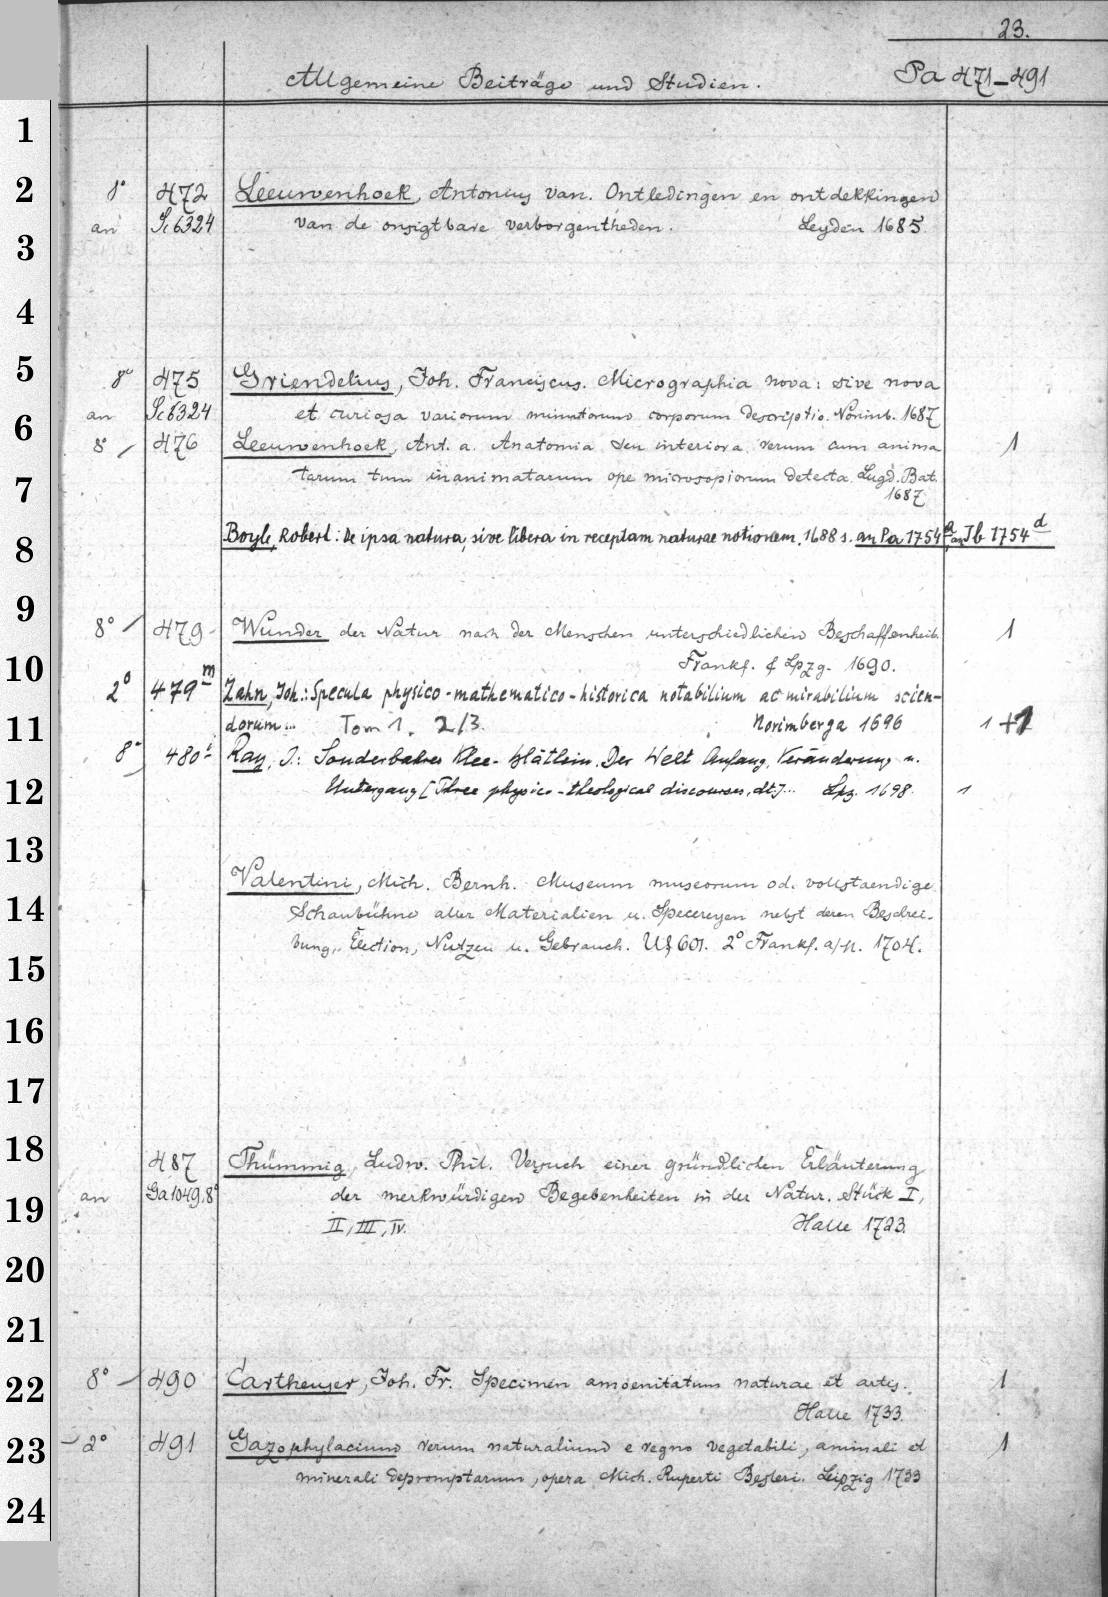 23.
Allgemeine Beiträge und Studien. Pa 471-491
1
2 8° 472 Leeuwenhoek, Antonius van. Ontledingen en ontdekkingen
an Sc 6324 van de onsigtbare verborgentheden. Leyden 1685
3
4
5 8° 475 Griendelius, Joh. Franciscus. Micrographia nova: sive nova
an Sc 6324 et curiosa variorum minutorum corporum descriptio. Norimb. 1687
6 8° 476 Leeuwenhoek, Ant. a. Anatomia seu interiora rerum cum anima 1
tarum tum inanimatarum ope microsopiorum detecta. Lugd. Bat.
7 1687
8 Boyle, Robert: De ipsa natura, sive libera in receptam naturae notionem. 1688 s. an Pa 1754 an Jb 1754 d
9 8° 479 Wunder der Natur nach der Menschen unterschiedlichen Beschaffenheit. 1
10 Frankf. & Lpzg. 1690.
2° 479 m Zahn, Joh.: Specula physico-mathematico-historica notabilium ac mirabilium scien-
11 dorum... Tom 1. 2/3. Norimberga 1696 1 +1
8° 480 i Ray, J.: Sonderbahres Klee-blätlein. Der Welt Anfang, Veränderung u.
12 Untergang [Three physico-theological discourses, dt.]... Lpz. 1698. 1
13
14 Valentini, Mich. Bernh. Museum museorum od. vollstaendige
Schaubühne aller Materialien u. Specereyen nebst deren Beschrei-
15 bung, Election, Nutzen u. Gebrauch. Uf 601. 2° Frankf. a/M. 1704.
16
17
18 487 Thümmig, Ludw. Phil. Versuch einer gründlichen Erläuterung
19 an Ga 1049.8° der merkwürdigen Begebenheiten in der Natur. Stück I,
II, III, IV. Halle 1723.
20
21
22 8° 490 Cartheuser, Joh. Fr. Specimen amoenitatum naturae et artis. 1
Halle 1733.
23 2° 491 Gazophylacium rerum naturalium e regno vegetabili, animali et 1
minerali depromptarum, opera Mich. Ruperti Besleri. Leipzig 1733
24